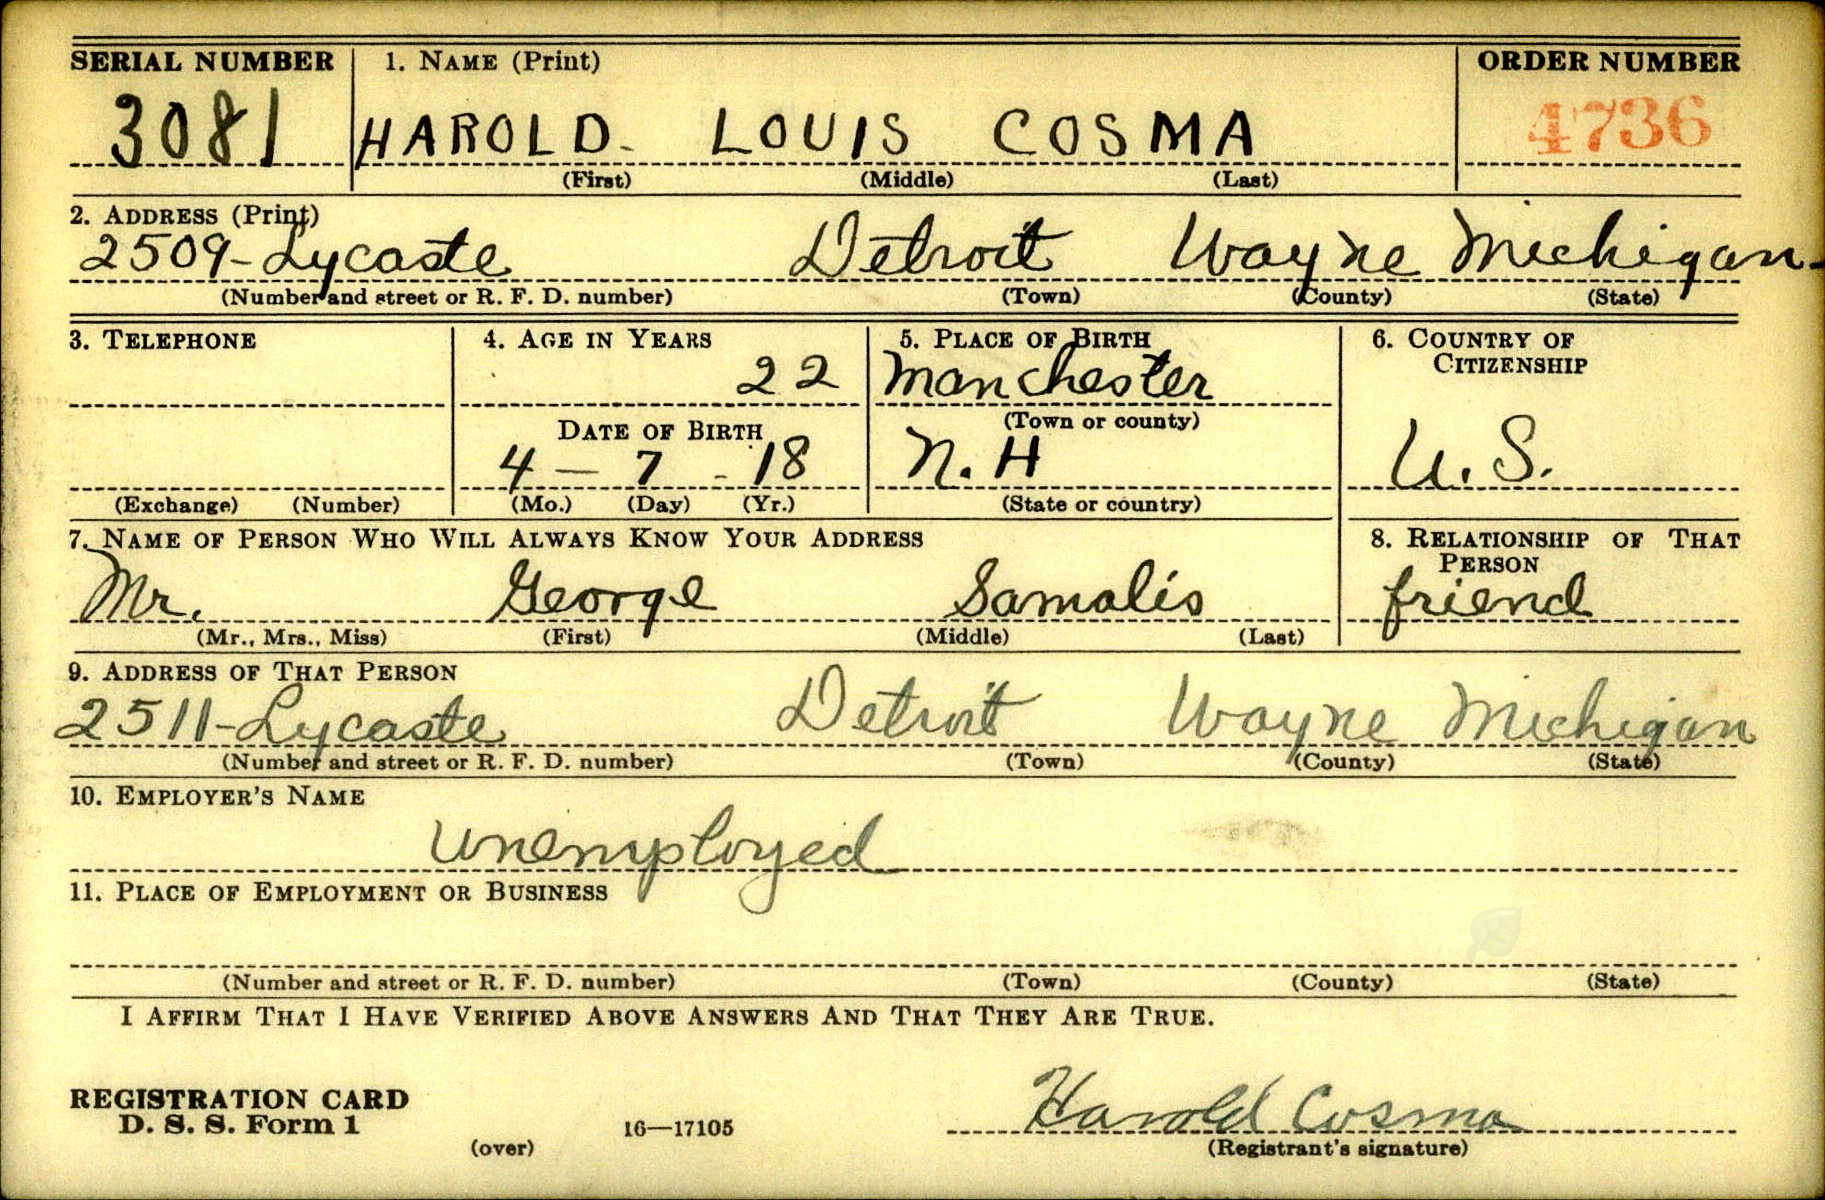 SERIAL NUMBER 1. NAME (Print) ORDER NUMBER
3081 HAROLD LOUIS COSMA 4736
(First) (Middle) (Last)
2. ADDRESS (Print)
2509-Lycaste Detroit Wayne Michigan
(Number and street or R. F. D. number) (Town) (County) (State)
3. TELEPHONE 4. AGE IN YEARS 5. PLACE OF BIRTH 6. COUNTRY OF
CITIZENSHIP
22 Manchester
(Town or county)
DATE OF BIRTH
4-7-18 N.H U.S.
(Exchange) (Number) (Mo.) (Day) (Yr.) (State or country)
7. NAME OF PERSON WHO WILL ALWAYS KNOW YOUR ADDRESS 8. RELATIONSHIP OF THAT
PERSON
Mr. George Samalis friend
(Mr., Mrs., Miss) (First) (Middle) (Last)
9. ADDRESS OF THAT PERSON
2511-Lycaste Detroit Wayne Michigan
(Number and street or R. F. D. number) (Town) (County) (State)
10. EMPLOYER'S NAME
Unemployed
11. PLACE OF EMPLOYMENT OR BUSINESS
(Number and street or R. F. D. number) (Town) (County) (State)
I AFFIRM THAT I HAVE VERIFIED ABOVE ANSWERS AND THAT THEY ARE TRUE.
REGISTRATION CARD Harold Cosma
D. S. S. Form 1 16—17105
(over) (Registrant's signature)